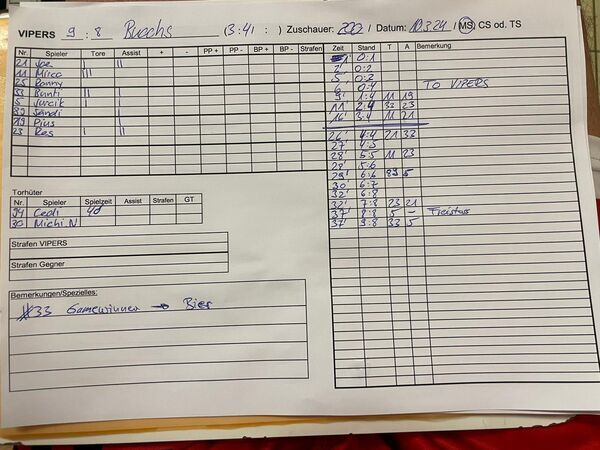 VIPERS 9 : 8 Buochs (3:4 : ) Zuschauer: 200 / Datum: 10.3.24 / MS, CS od. TS
Nr. Spieler Tore Assist + - PP + PP - BP + BP - Strafen Zeit Stand T A Bemerkung
21 Joe | ||
11 Mirco |||
25 Ronny
33 Bünti | | |
5 Jurcik | ||
89 Sandi |
19 Pius |
23 Res | ||
1' 0:1
2' 0:2
5' 0:2
6' 0:4 TO VIPERS
9' 1:4 11 19
11' 2:4 33 23
16' 3:4 11 21
26' 4:4 21 33
27' 4:5
28' 5:5 11 23
28' 5:6
29' 6:6 89 5
30' 6:7
32' 6:8
32' 7:8 23 21
37' 8:8 5 - Freistoss
37' 9:8 33 5
Torhüter
Nr. Spieler Spielzeit Assist Strafen GT
Cedi
30 Michi.N
Strafen VIPERS
Strafen Gegner
Bemerkungen/Spezielles:
#33 Gamewinner → Bier